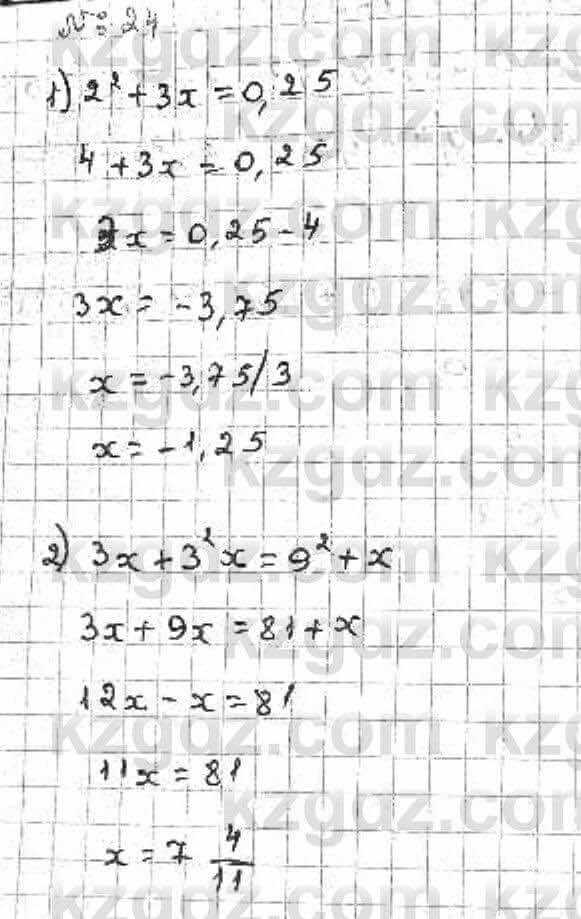 № 24
1) 2² + 3x = 0,25
4 + 3x = 0,25
3x = 0,25 - 4
3x = -3,75
x = -3,75/3
x = -1,25
2) 3x + 3²x = 9² + x
3x + 9x = 81 + x
12x - x = 81
11x = 81
x = 7 4/11
kzgdz.com